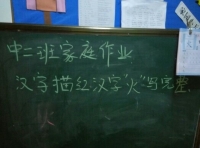 中二班家庭作业
汉字描红汉字“火”写完整